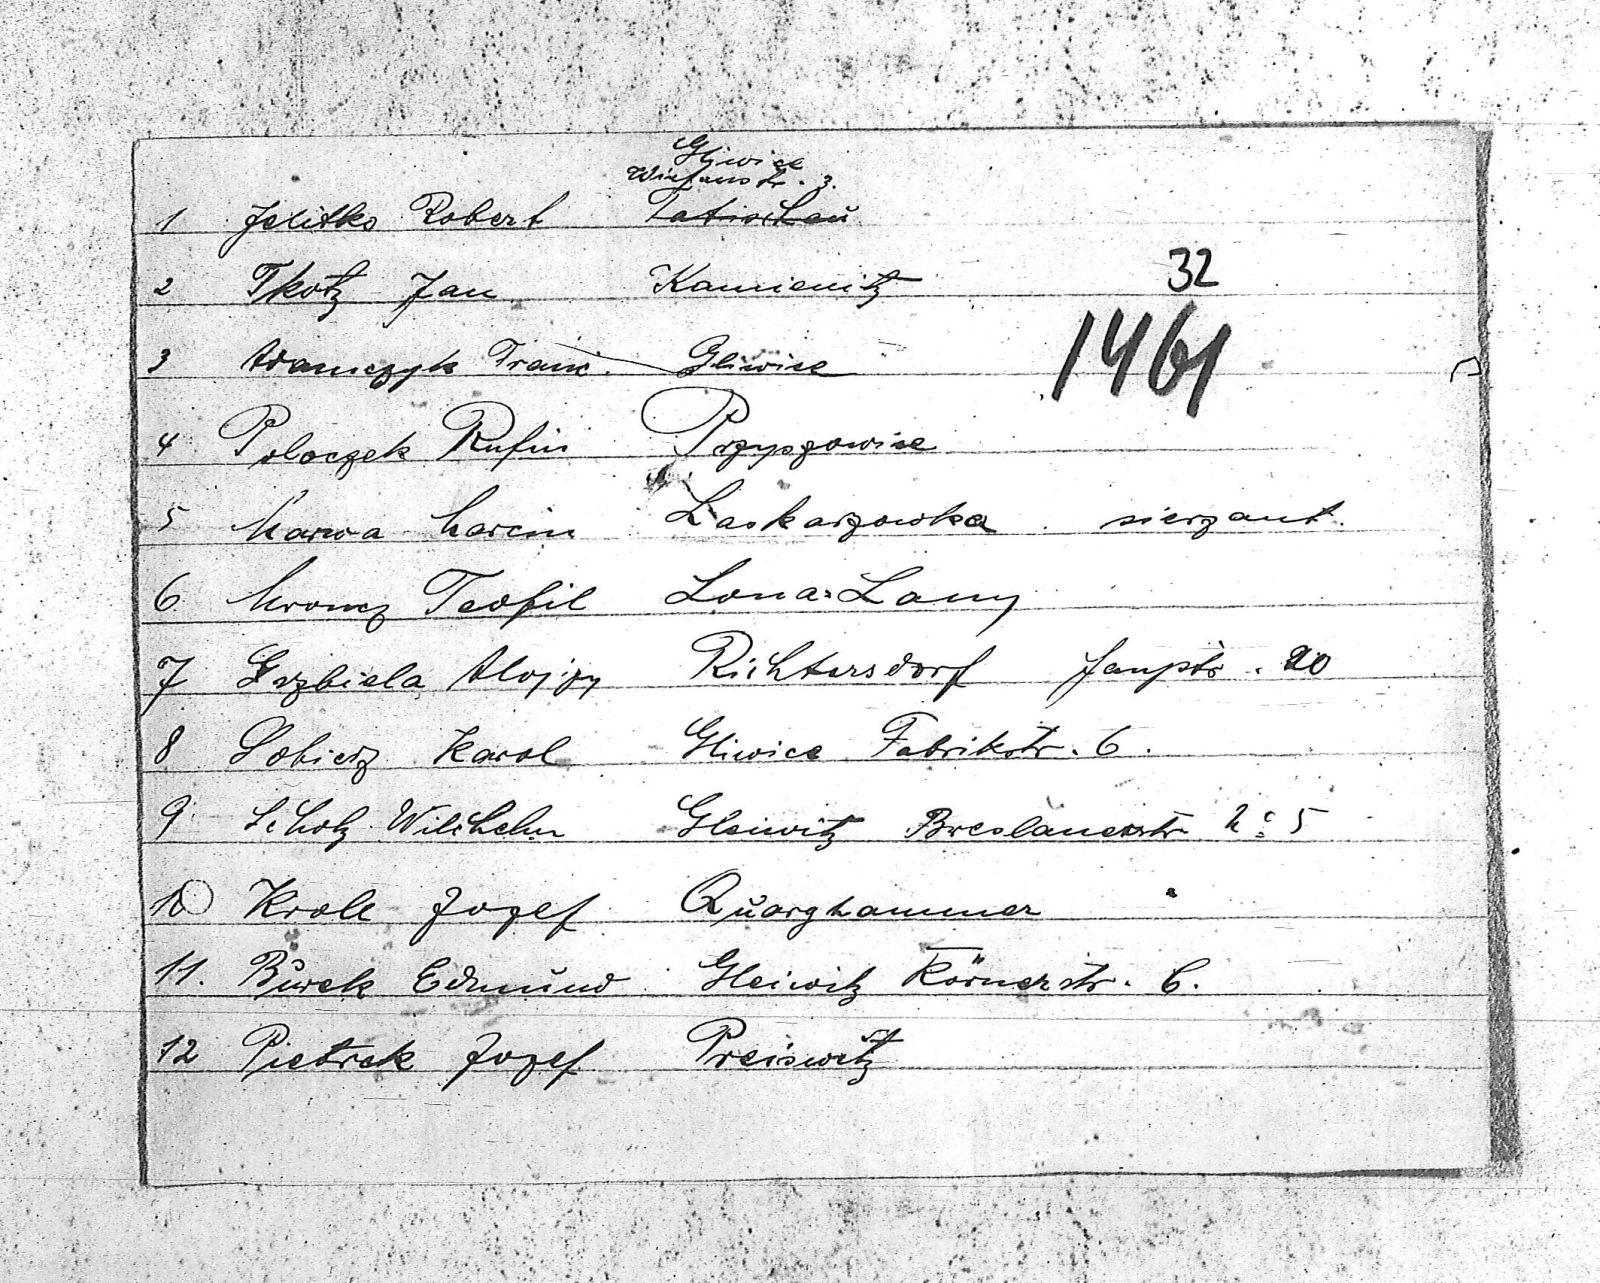 Gliwice
Wiesenstr. 3.
1 Jelitko Robert Tatischau
2 Tkotz Jan Kamienitz
32
3 Adamczyk Franc. Gliwice
1461
4 Poloczek Rufin Przyszowice
5 Marwa Marcin Laskarzowka sierzant.
6 Mroncz Teofil Lona-Lany
7 Grzbiela Alojzy Richtersdorf 20
8 Sobierz Karol Gliwice Fabrikstr. 6.
9 Scholz Wilchelm Gleiwitz Breslauerstr № 5
10 Krole Jozef Quarghammer
11. Burek Edmund Gleiwitz Körnerstr. 6.
12 Pietrek Jozef Preiswitz